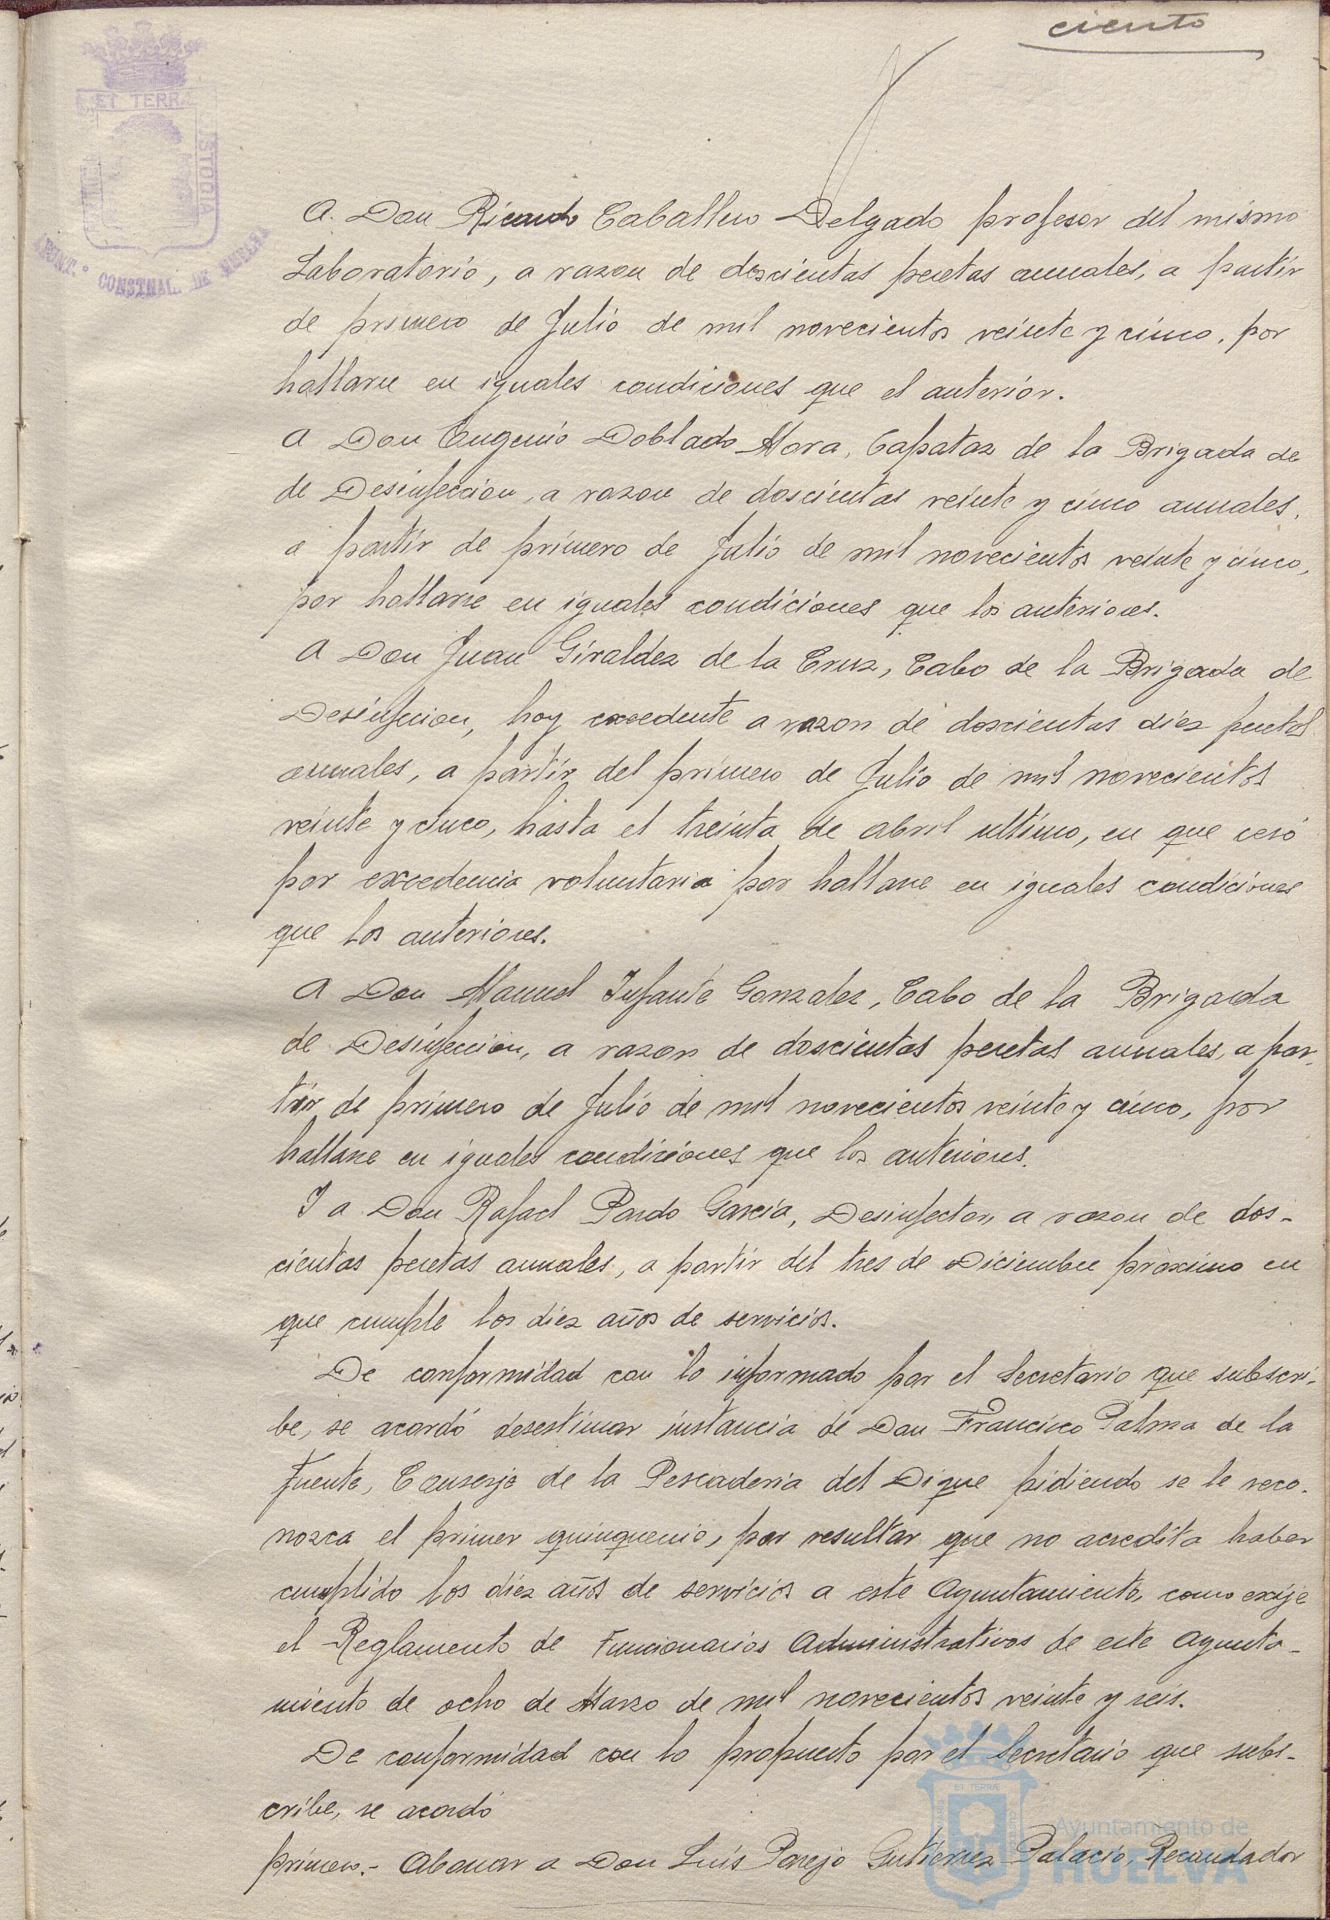 ciento
ET TERRÆ
STODIA
AYUNT.º CONSTNAL. DE HUELVA
A Don Ricardo Caballero Delgado profesor del mismo
Laboratorio, a razon de doscientas pesetas anuales, a partir
de primero de Julio de mil novecientos veinte y cinco, por
hallarse en iguales condiciones que el anterior.
A Don Eugenio Doblado Mora, Capataz de la Brigada de
de Desinfeccion, a razon de doscientas veinte y cinco anuales,
a partir de primero de Julio de mil novecientos veinte y cinco,
por hallarse en iguales condiciones que los anteriores.
A Don Juan Giraldez de la Cruz, Cabo de la Brigada de
Desinfeccion, hoy excedente a razon de doscientas diez pesetas
anuales, a partir del primero de Julio de mil novecientos
veinte y cinco, hasta el treinta de abril ultimo, en que cesó
por excedencia voluntaria por hallarse en iguales condiciones
que los anteriores.
A Don Manuel Infante Gonzalez, Cabo de la Brigada
de Desinfeccion, a razon de doscientas pesetas anuales, a par-
tir de primero de Julio de mil novecientos veinte y cinco, por
hallarse en iguales condiciones que los anteriores.
Y a Don Rafael Pardo Garcia, Desinfector, a razon de dos-
cientas pesetas anuales, a partir del tres de Diciembre próximo en
que cumple los diez años de servicios.
De conformidad con lo informado por el Secretario que subscri-
be, se acordó desestimar instancia de Don Francisco Palma de la
Fuente, Conserje de la Pescaderia del Dique pidiendo se le reco-
nozca el primer quinquenio, por resultar que no acredita haber
cumplido los diez años de servicios a este Ayuntamiento, como exije
el Reglamento de Funcionarios Administrativos de este Ayunta-
miento de ocho de Marzo de mil novecientos veinte y seis.
De conformidad con lo propuesto por el Secretario que subs-
cribe, se acordó
primero.- Abonar a Don Luis Parejo Gutiérrez Palacio, Recaudador
ET TERRÆ
Ayuntamiento de
HUELVA